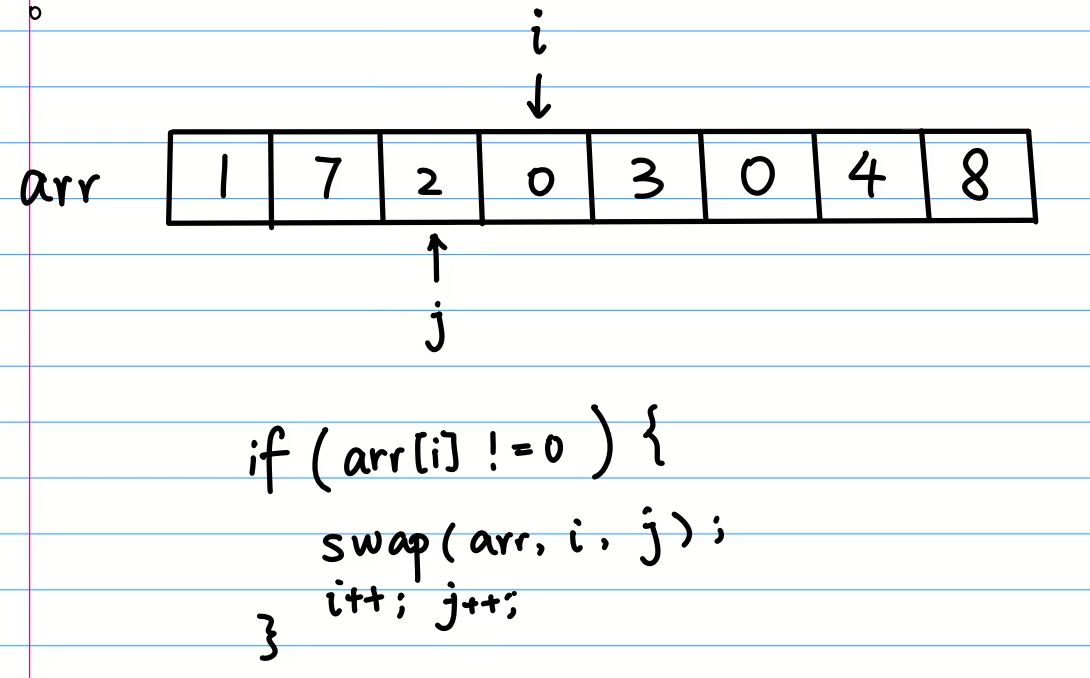 i
arr 1 7 2 0 3 0 4 8
j
if (arr[i] != 0) {
swap(arr, i, j);
i++; j++;
}